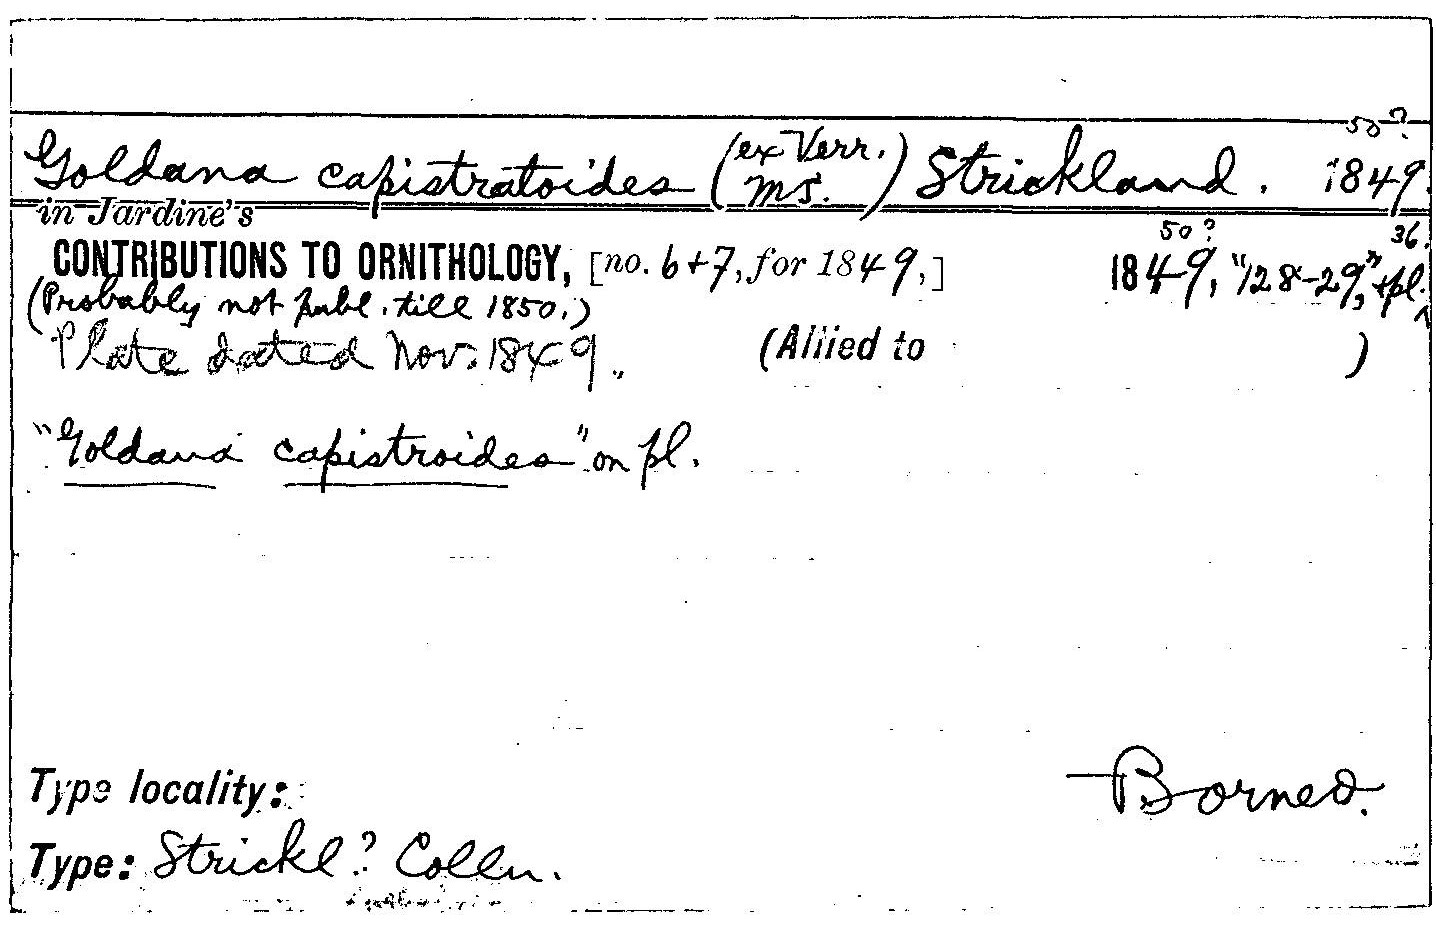 50?
Goldana capistratoides (ex Verr. MS.) Strickland. 1849.
in Jardine's
50? 36.
CONTRIBUTIONS TO ORNITHOLOGY, [no. 6+7, for 1849,] 1849, "128-29," +pl.^
(Probably not publ. till 1850.)
Plate dated Nov. 1849. (Allied to )
"Goldana capistroides" on pl.
Type locality: Borneo.
Type: Strickl? Colln.